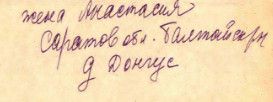 жена Анастасия
Саратов обл. Балтайскр
д Донгус